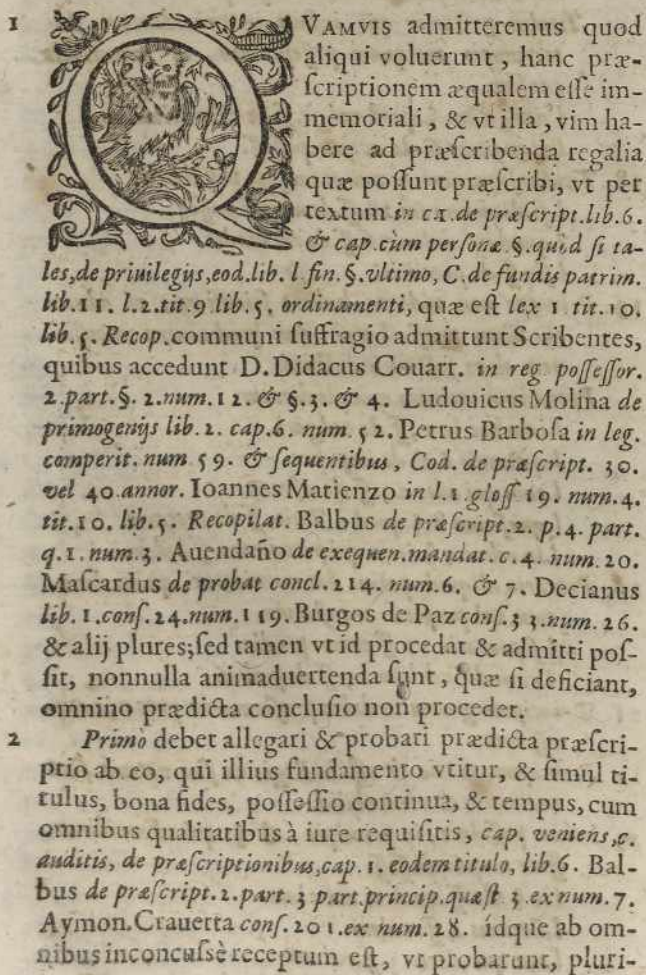 1 QVAMVIS admitteremus quod
aliqui voluerunt, hanc præ-
ſcriptionem æqualem eſſe im-
memoriali, & vt illa, vim ha-
bere ad præſcribenda regalia
quæ poſſunt præſcribi, vt per
textum in c.1.de præſcript.lib.6.
& cap.cùm perſonæ.§.quid ſi ta-
les,de priuilegijs,eod.lib. l fin.§.vltimo, C.de fundis patrim.
lib.11. l.2.tit.9 lib.5. ordinamenti, quæ eſt lex 1 tit.10.
lib.5. Recop.communi ſuffragio admittunt Scribentes,
quibus accedunt D.Didacus Couarr. in reg poſſeſſor.
2.part.§. 2.num.12.& §.3.& 4. Ludouicus Molina de
primogenijs lib.2. cap.6. num.52. Petrus Barboſa in leg.
comperit.num 59. & ſequentibus, Cod. de præſcript. 30.
vel 40.annor. Ioannes Matienzo in l.1.gloſſ 19. num.4.
tit.10. lib.5. Recopilat. Balbus de præſcript.2. p.4. part.
q.1.num.3. Auendaño de exequen.mandat.c.4. num.20.
Maſcardus de probat concl.214. num.6. & 7. Decianus
lib.1.conſ.24.num.119. Burgos de Paz conſ.33.num.26.
& alij plures;ſed tamen vt id procedat & admitti poſ-
ſit, nonnulla animaduertenda ſunt, quæ ſi deficiant,
omnino prædicta concluſio non procedet.
2 Primò debet allegari & probari prædicta præſcri-
ptio ab eo, qui illius fundamento vtitur, & ſimul ti-
tulus, bona fides, poſſeſſio continua, & tempus, cum
omnibus qualitatibus à iure requiſitis, cap. veniens,c.
auditis, de præſcriptionibus,cap.1. eodem titulo, lib.6. Bal-
bus de præſcript.2.part. 3 part.princip.quæſt 3 ex num.7.
Aymon.Crauetta conſ.201.ex num.28. ídque ab om-
nibus inconcuſsè receptum eſt, vt probarunt, pluri-